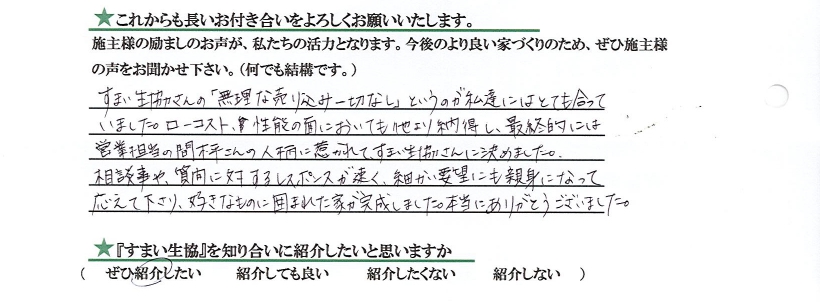 ★これからも長いお付き合いをよろしくお願いいたします。
施主様の励ましのお声が、私たちの活力となります。今後のより良い家づくりのため、ぜひ施主様
の声をお聞かせ下さい。（何でも結構です。）
すまい生協さんの「無理な売り込み一切なし」というのが私達にはとても合って
いました。ローコスト、性能の面においても他より納得し、最終的には
営業担当の間杉さんの人柄に惹かれて、すまい生協さんに決めました。
相談事や、質問に対するレスポンスが速く、細かい要望にも親身になって
応えて下さり、好きなものに囲まれた家が完成しました。本当にありがとうございました。
★『すまい生協』を知り合いに紹介したいと思いますか
（ ぜひ紹介したい 紹介しても良い 紹介したくない 紹介しない ）